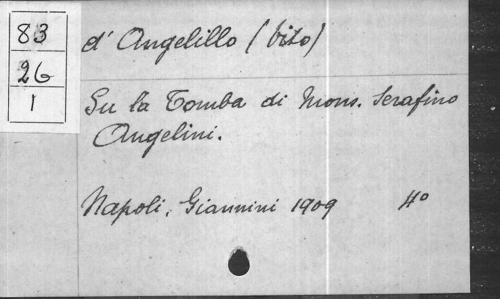 83
26
1
d' Angelillo (Vito)
Su la Tomba di Mons. Serafino
Angelini.
Napoli, Giannini 1909 4º